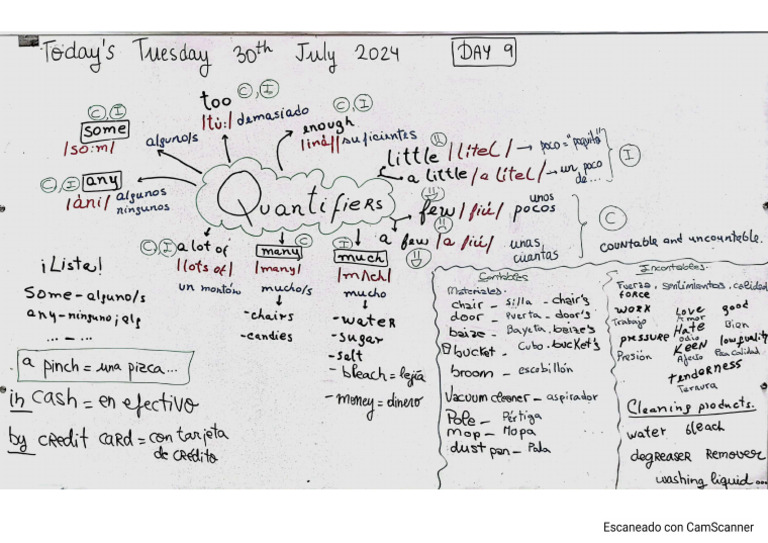 Today's Tuesday 30th July 2024 DAY 9
too C, I
/tú:/ demasiado
C, I
some
/so:m/
algunos/s
C, I
enough
/inaf/ suficientes
C, I any
/áni/ algunos
ningunos
Quantifiers
little /litel/ → poco = "poquito"
a little /a litel/ → un poco
de...
I
few /fiú/ unos
pocos
a few /a fiú/ unas
cuantas
C
countable and uncountable.
C, I a lot of
/lots of/
un montón
many C
/many/
mucho/s
- chairs
- candies
I
much
/mach/
mucho
- water
- sugar
- salt
- bleach = lejía
- money = dinero
¡Lista!
some - alguno/s
any - ninguno; algs
... - ...
a pinch = una pizca...
in cash = en efectivo
by credit card = con tarjeta
de crédito
Contables
Materiales:
chair - silla - chair's
door - puerta - door's
baize - Bayeta. baize's
bucket - Cubo. bucket's
broom - escobillón
Vacuum cleaner - aspirador
Pole - Pértiga
mop - Mopa
dust pan - Pala
Incontables.
Fuerza, sentimientos, calidad
force
work Love good
Trabajo Amor Bien
pressure Hate low quality
Presión odio Poca Calidad
Keen
tenderness
Ternura
Cleaning products.
water bleach
degreaser Remover
washing liquid...
Escaneado con CamScanner